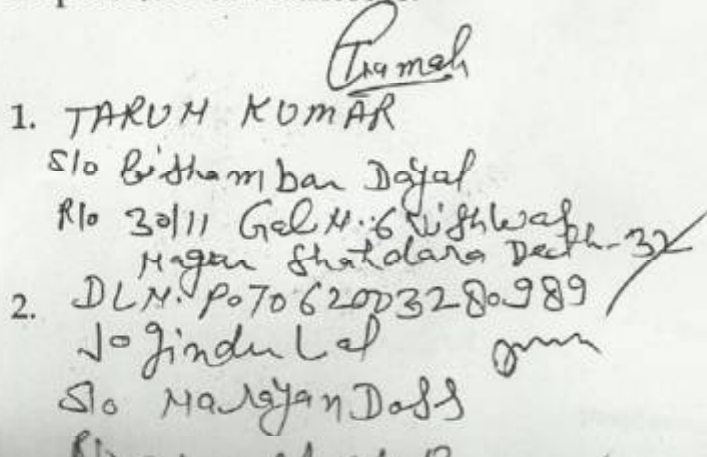 1. TARUN KUMAR
S/o Bishamban Dayal
R/o 30/11 Gal N. 6 Vishwas
Nagar Shahdara Delh-32
2. DLN. P07062003280989
Joginder Lal
S/o Narayan Doss